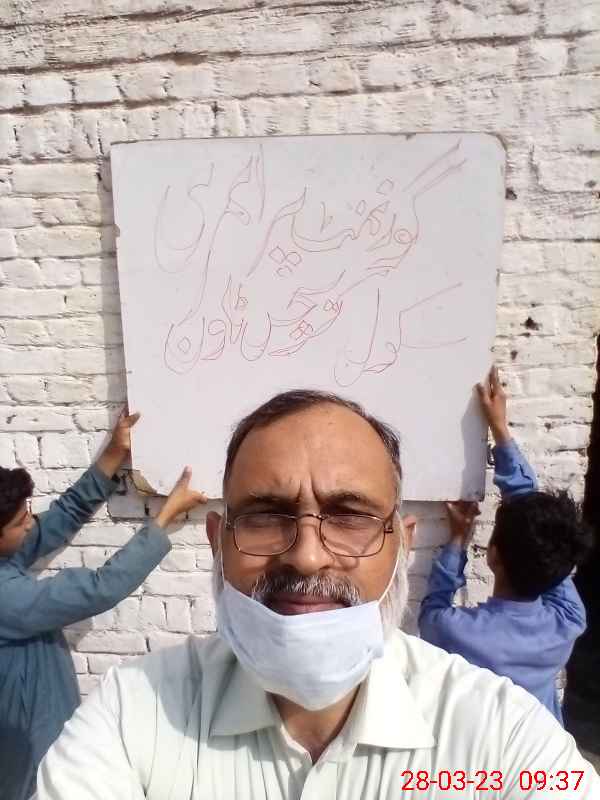 گورنمنٹ پرائمری
سکول کرسچن ٹاون
28-03-23 09:37